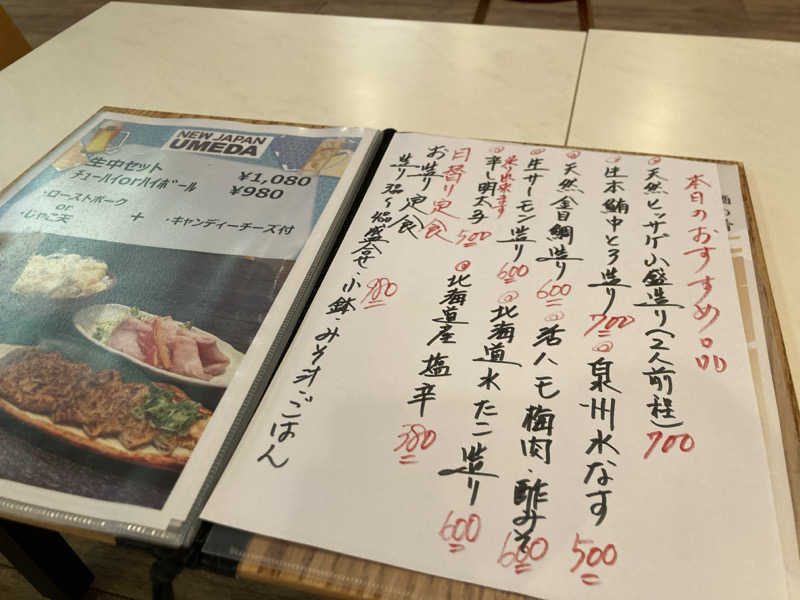 NEW JAPAN
UMEDA
生中セット ¥1,080
チューハイorハイボール ¥980
・ローストポーク
or
・じゃこ天
+
・キャンディーチーズ付
本日のおすすめ品
天然ヒッサゲ小盛造り(2人前程) 700
生本鮪中とろ造り 700
泉州水なす 500
天然金目鯛造り 600
活ハモ梅肉・酢みそ 600
生サーモン造り 600
北海道水たこ造り 600
辛し明太子 500
北海道産塩辛 380
日替り定食
お造り定食 980
小鉢・みそ汁・ごはん